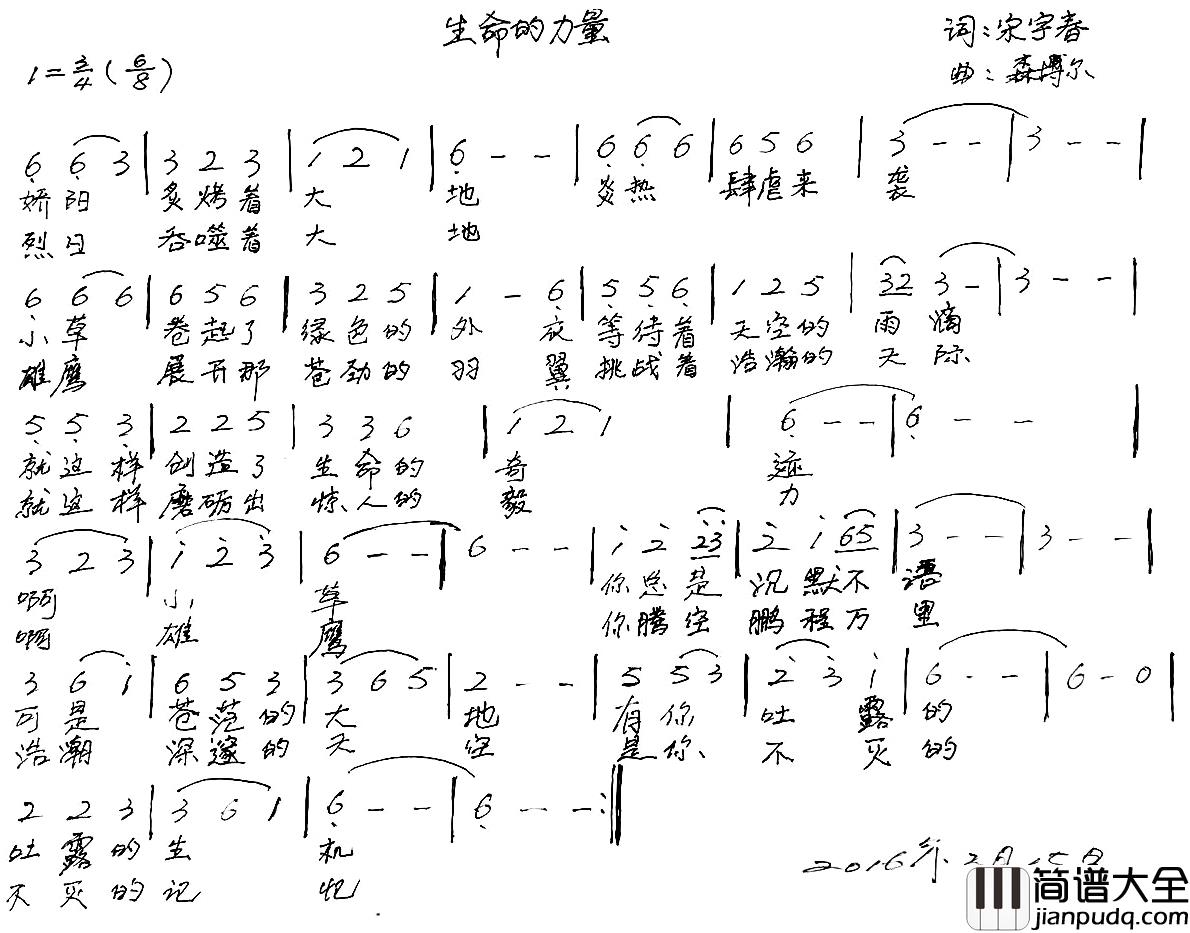 生命的力量
词:宋宇春
1=3/4(6/8)
曲:森博尔
6 6 3 | 3 2 3 | 1 2 1 | 6 - - | 6 6 6 | 6 5 6 | 3 - - | 3 - - |
娇阳 炙烤着 大 地 炎热 肆虐来 袭
烈日 吞噬着 大 地
6 6 6 | 6 5 6 | 3 2 5 | 1 - 6 | 5 5 6 | 1 2 5 | 32 3 - | 3 - - |
小草 卷起了 绿色的 外 衣 等待着 天空的 雨滴
雄鹰 展开那 苍劲的 羽 翼 挑战着 浩瀚的 天际
5 5 3 | 2 2 5 | 3 3 6 | 1 2 1 | 6 - - | 6 - - |
就这样 创造了 生命的 奇 迹
就这样 磨砺出 惊人的 毅 力
3 2 3 | 1 2 3 | 6 - - | 6 - - | 1 2 23 | 2 1 65 | 3 - - | 3 - - |
啊 小 草 你总是 沉默不 语
啊 雄 鹰 你腾空 鹏程万 里
3 6 1 | 6 5 3 | 3 6 5 | 2 - - | 5 5 3 | 2 3 1 | 6 - - | 6 - 0 |
可是 苍茫的 大 地 有你 吐 露 的
浩潮 深邃的 天 空 是你、 不 灭 的
2 2 3 | 3 6 1 | 6 - - | 6 - - :||
吐露的 生 机
不灭的 记 忆
2016年2月15日
简谱大全
jianpudq.com